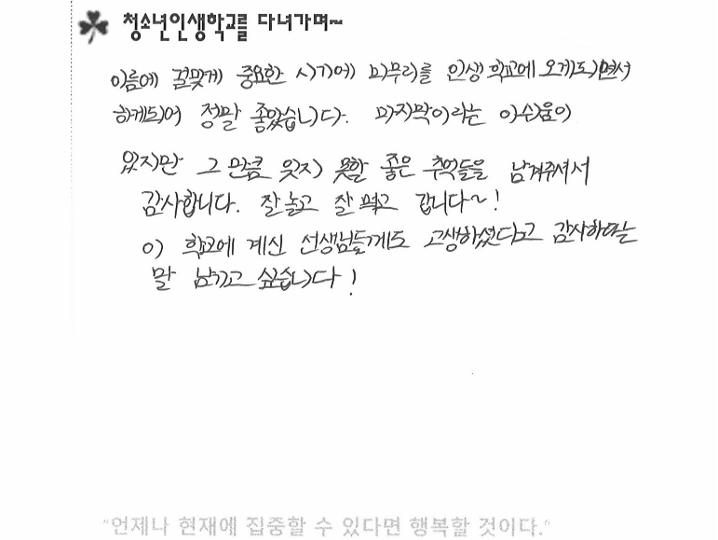 청소년인생학교를 다녀가며~
이름에 걸맞게 중요한 시기에 마무리를 인생학교에 오게되면서
하게되어 정말 좋았습니다. 마지막이라는 아쉬움이
있지만 그 만큼 잊지 못할 좋은 추억들을 남겨주셔서
감사합니다. 잘 놀고 잘 먹고 갑니다~!
이 학교에 계신 선생님들께도 고생하셨다고 감사하다는
말 남기고 싶습니다!
"언제나 현재에 집중할 수 있다면 행복할 것이다."